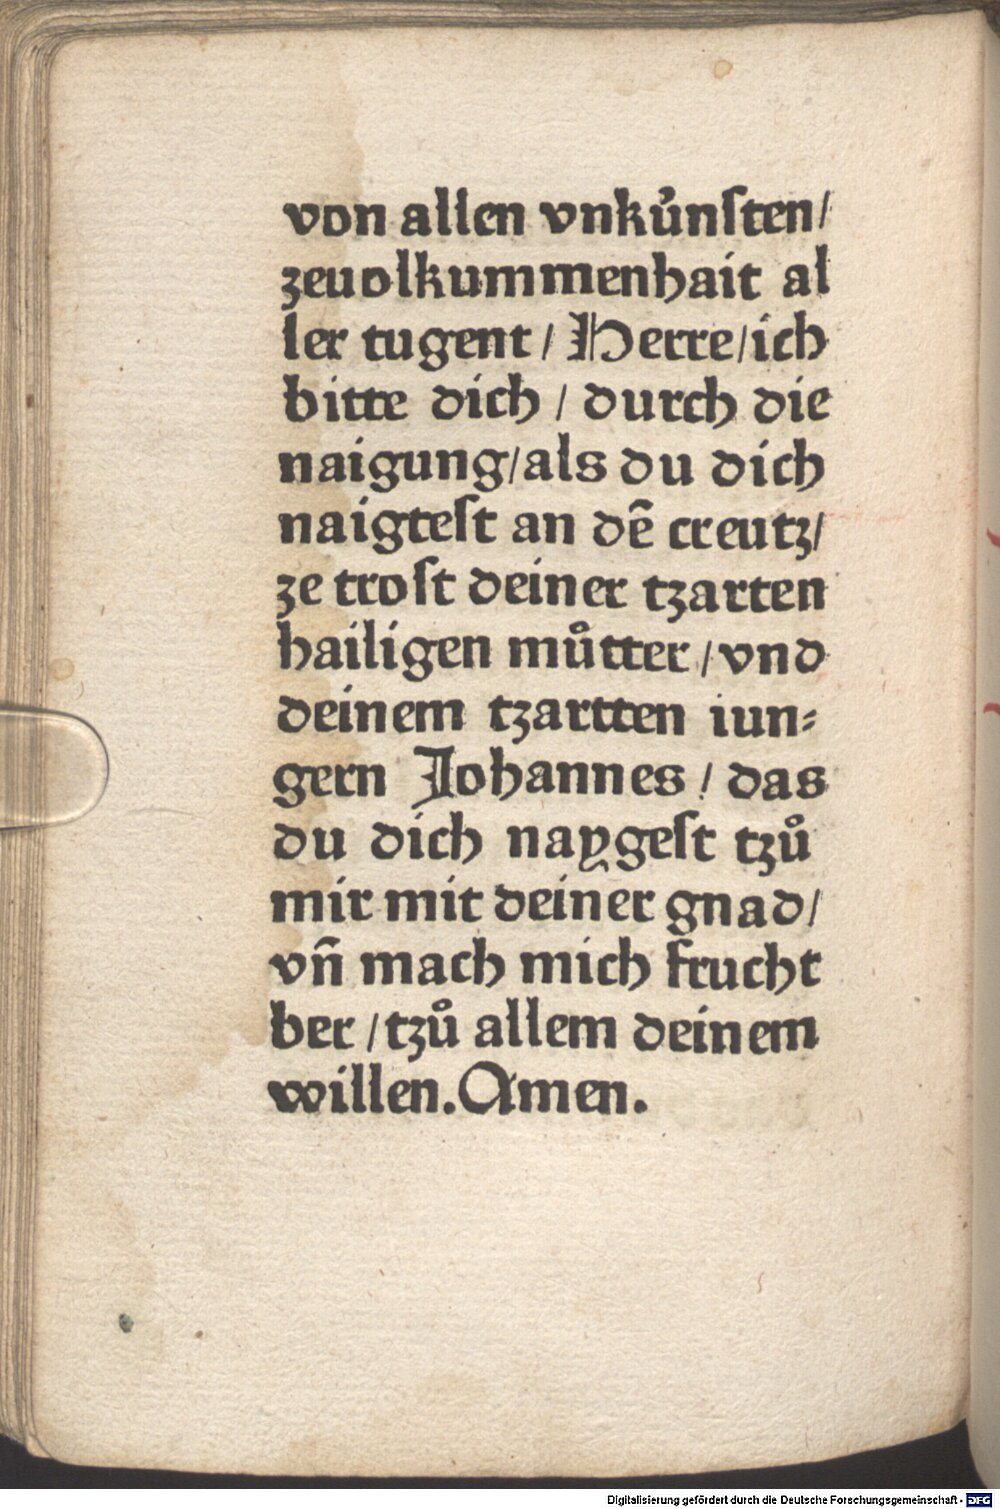 von allen vnkůnſten/
zeuolkummenhait al
ler tugent / Herre/ich
bitte dich / durch die
naigung/als du dich
naigteſt an dē creutz/
ze troſt deiner tzarten
hailigen můtter / vnd
deinem tzartten iun⸗
gern Johannes / das
du dich naygeſt tzů
mir mit deiner gnad/
vn̄ mach mich frucht
ber / tzů allem deinem
willen. Amen.
Digitalisierung gefördert durch die Deutsche Forschungsgemeinschaft - DFG